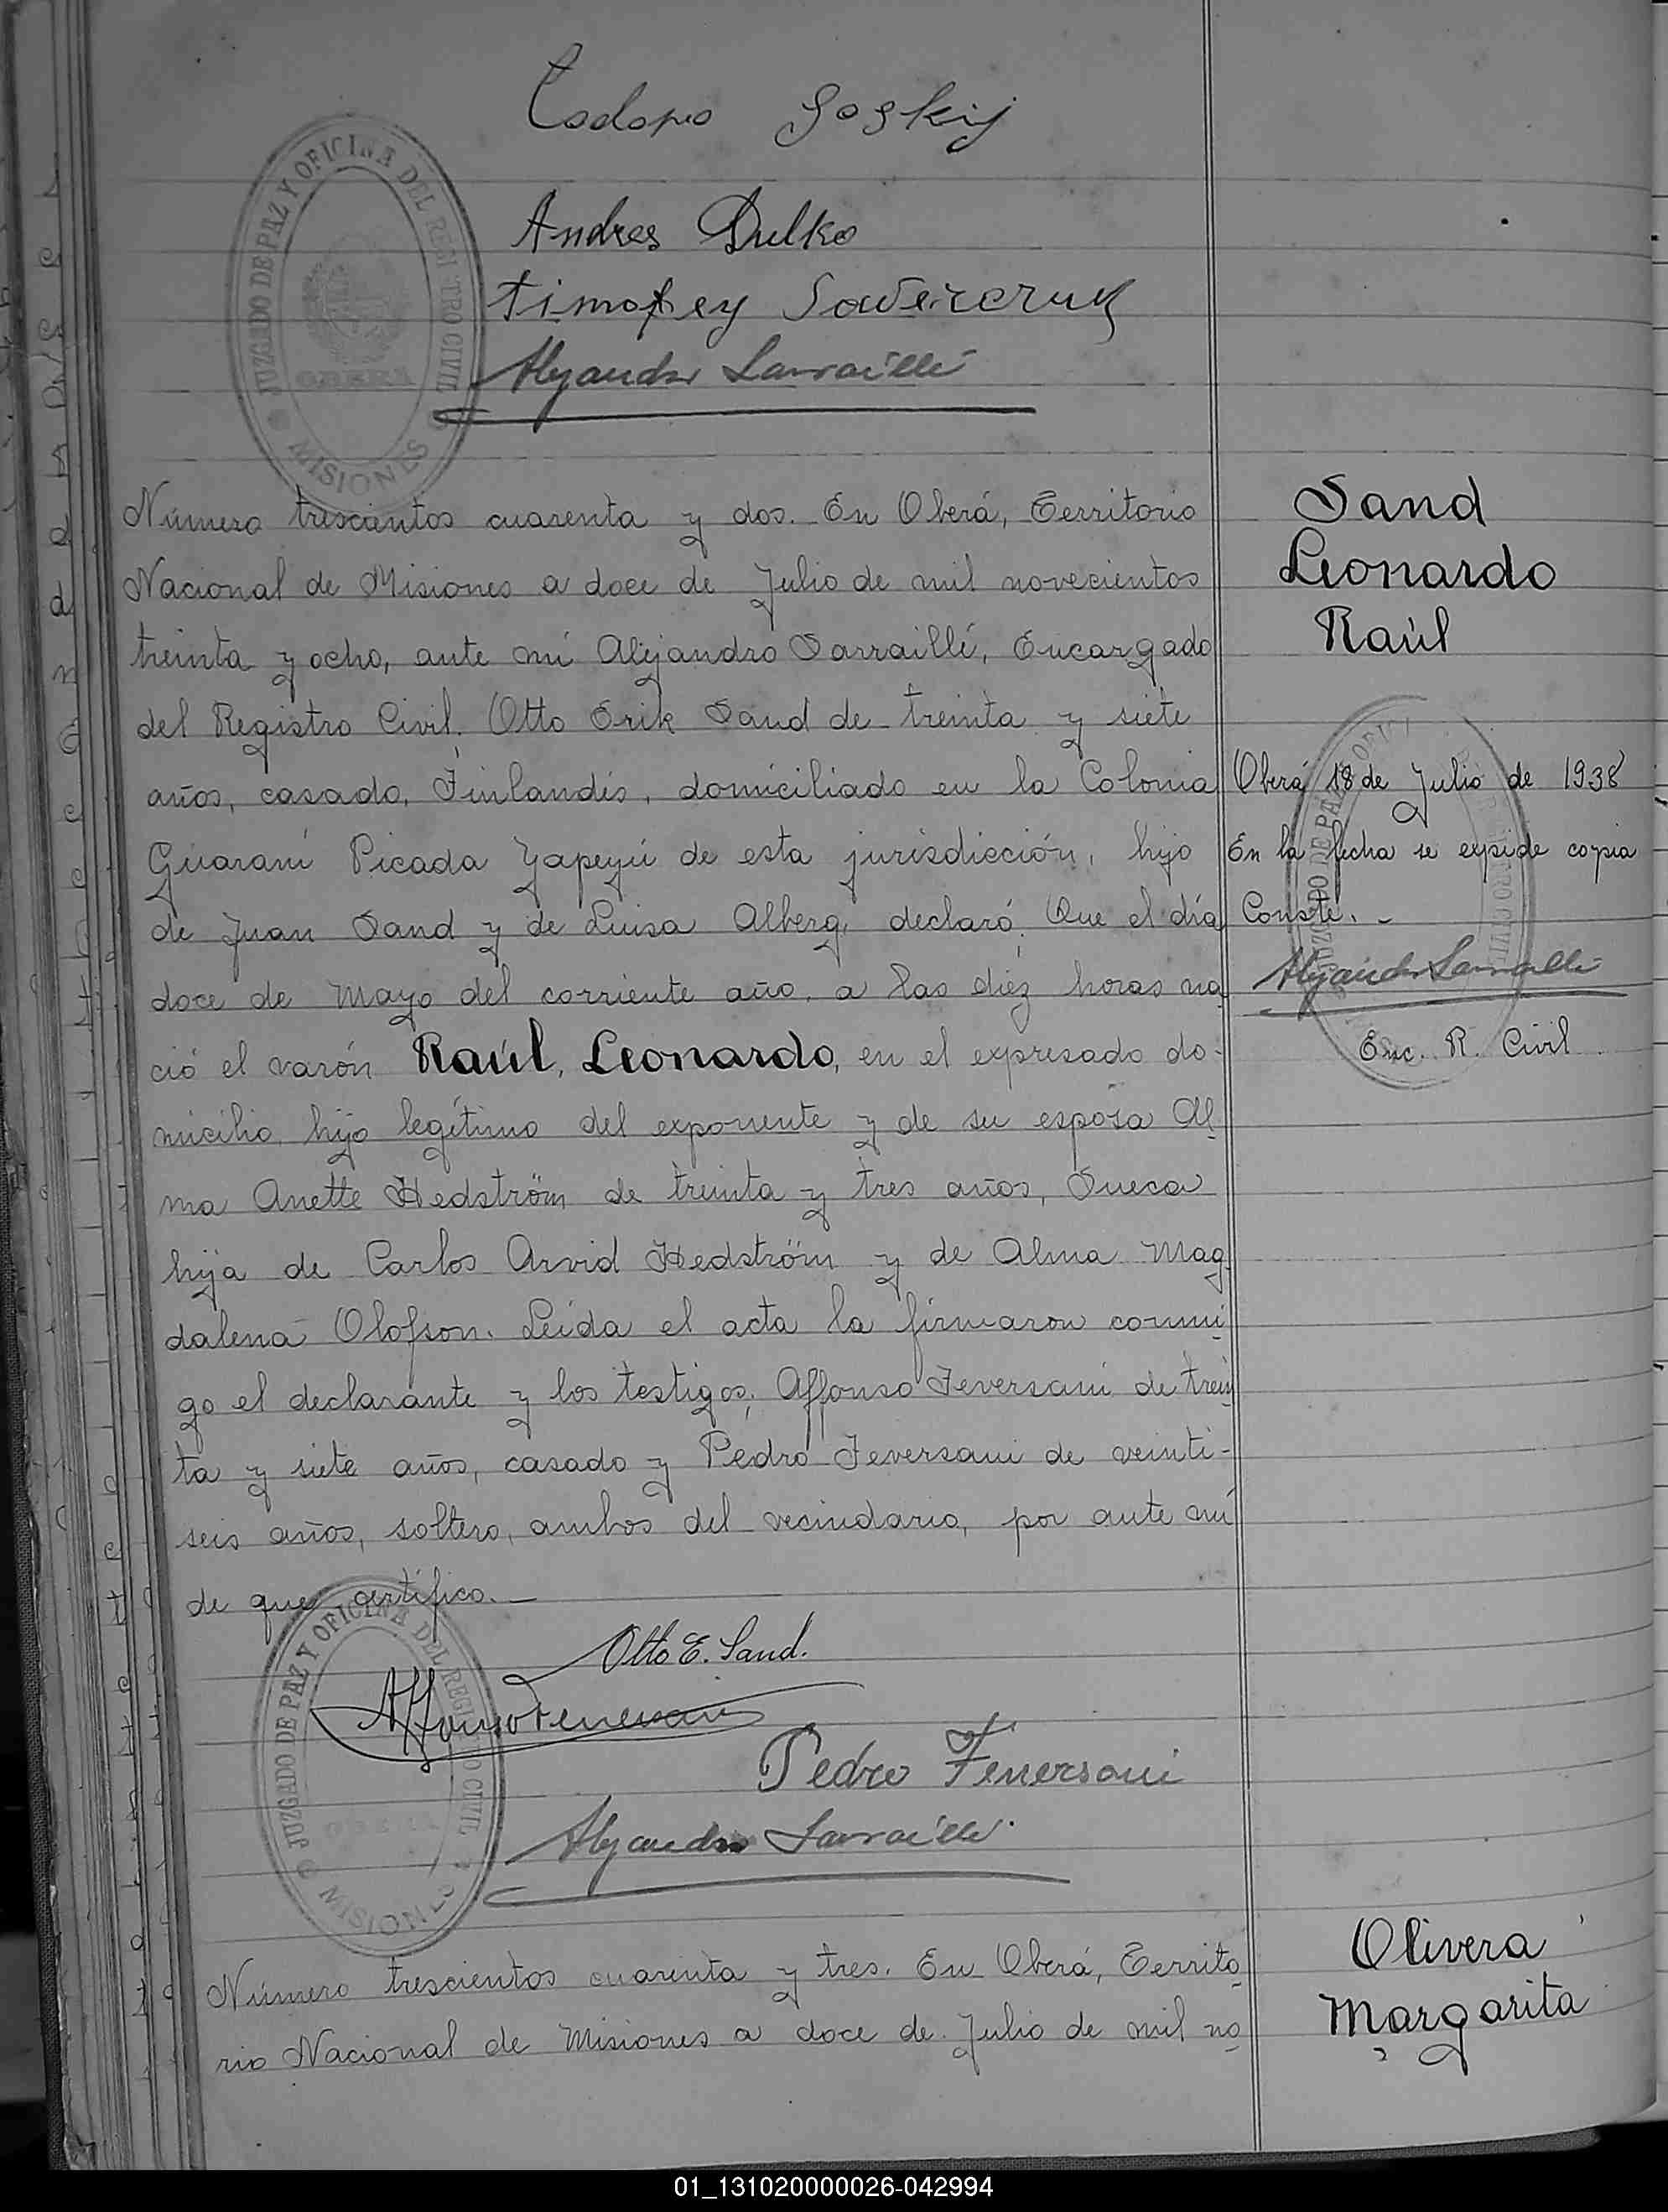 Todopio Goskij
Andres Dulko
Timofey Saverczuk
Alejandro Sarraillé
JUZGADO DE PAZ Y OFICINA DEL REGISTRO CIVIL
OBERA
MISIONES
Número trescientos cuarenta y dos. En Oberá, Territorio
Nacional de Misiones a doce de Julio de mil novecientos
treinta y ocho, ante mí Alejandro Sarraillé, Encargado
del Registro Civil. Otto Erik Sand de treinta y siete
años, casado, Finlandés, domiciliado en la Colonia
Guaraní Picada Yapeyú de esta jurisdicción, hijo
de Juan Sand y de Luisa Alberg, declaró: Que el día
doce de Mayo del corriente año, a las diez horas na
ció el varón Raúl, Leonardo, en el expresado do-
micilio, hijo legítimo del exponente y de su esposa Al-
ma Anette Hedström de treinta y tres años, Sueca
hija de Carlos Arvid Hedström y de Alma Mag
dalena Olofson. Leída el acta la firmaron conmi
go el declarante y los testigos; Affonso Feversani de trein
ta y siete años, casado y Pedro Feversani de veinti-
seis años, soltero, ambos del vecindario, por ante mí
de que certifico.—
Otto E. Sand.
Affonso Feversani
Pedro Feversani
Alejandro Sarraillé.
JUZGADO DE PAZ Y OFICINA DEL REGISTRO CIVIL
MISIONES
Sand
Leonardo
Raúl
Oberá 18 de Julio de 1938
En la fecha se expide copia
Conste.-
Alejandro Sarraillé
Enc. R. Civil
Número trescientos cuarenta y tres. En Oberá, Territo
rio Nacional de Misiones a doce de Julio de mil no
Olivera
Margarita
01_131020000026-042994